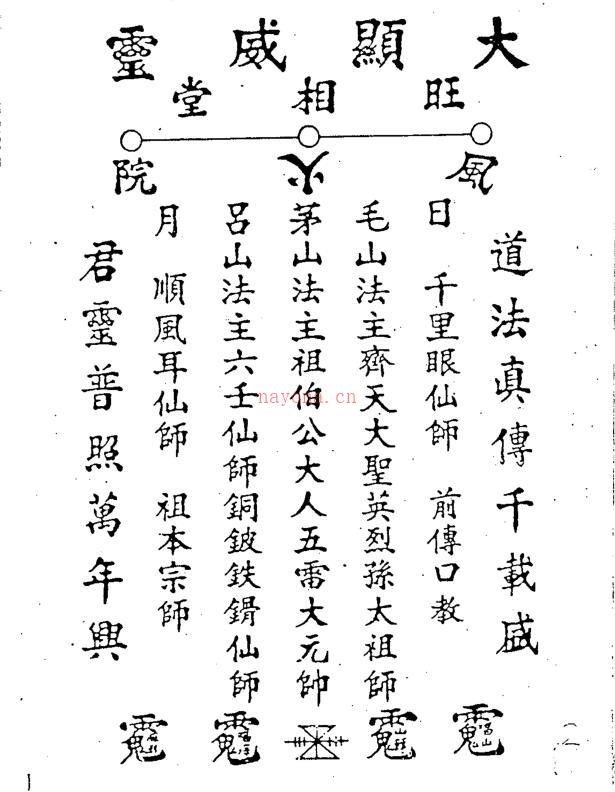 大顯威靈
旺相堂
風火院
道法真傳千載盛
日 千里眼仙師 前傳口教
毛山法主齊天大聖英烈孫太祖師
茅山法主祖伯公大人五雷大元帥
呂山法主六壬仙師銅鈸鉄鎖仙師
月 順風耳仙師 祖本宗師
君靈普照萬年興
nayona.cn